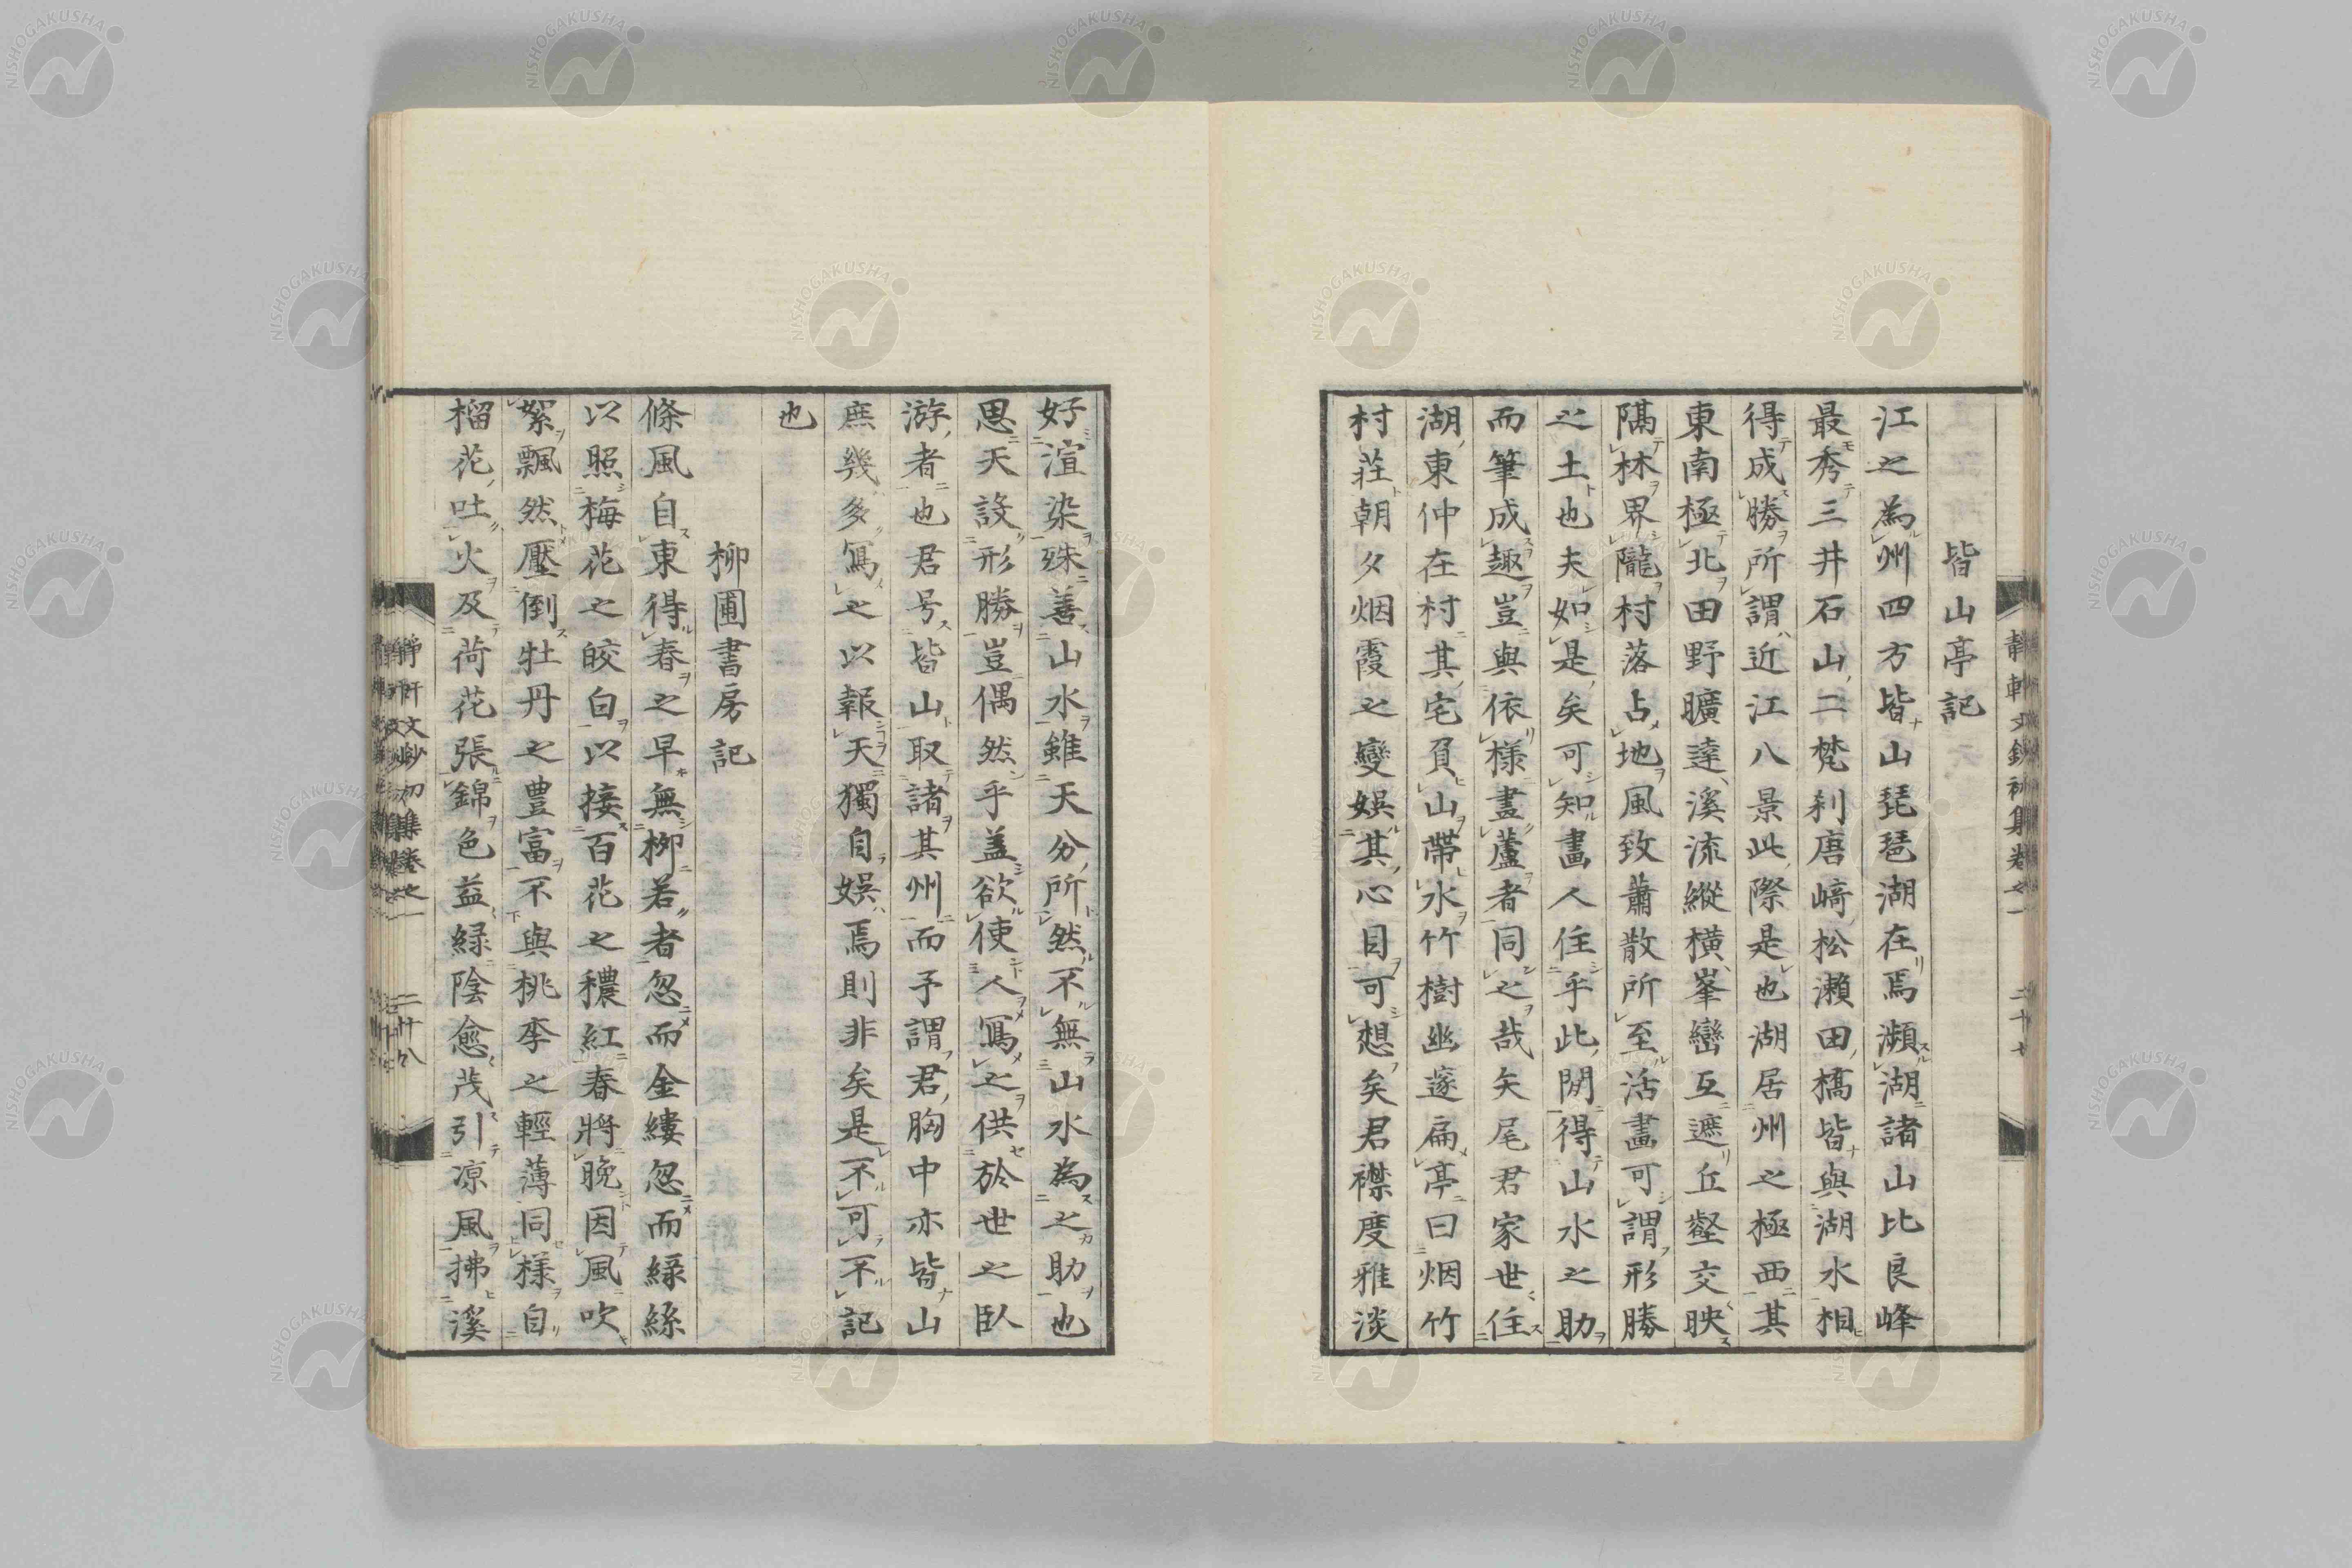 皆山亭記
江之為州四方皆山琵琶湖在焉瀕湖諸山比良峰
最秀三井石山二梵刹唐﨑松瀨田橋皆與湖水相
得成勝所謂近江八景此際是也湖居州之極西其
東南極北田野曠達溪流縱橫峯巒互遮丘壑交映
隔林界隴村落占地風致蕭散所至活畫可謂形勝
之土也夫如是矣可知畫人住乎此閒得山水之助
而筆成趣豈與依樣畫蘆者同之哉矢尾君家世住
湖東仲在村其宅負山帶水竹樹幽邃扁亭曰烟竹
村莊朝夕烟霞之變娛其心目可想矣君襟度雅淡
好渲染殊善山水雖天分所然不無山水為之助也
思天設形勝豈偶然乎盖欲使人寫之供於世之臥
游者也君号皆山取諸其州而予謂君胸中亦皆山
庶幾多寫之以報天獨自娛焉則非矣是不可不記
也
柳圃書房記
條風自東得春之早無柳若者忽而金縷忽而緑絲
以照梅花之皎白以接百花之穠紅春將晚因風吹
絮飄然壓倒牡丹之豊富不與桃李之輕薄同樣自
榴花吐火及荷花張錦色益緑陰愈茂引凉風拂溪
靜軒文鈔初集卷之一 二十七
靜軒文鈔初集卷之一 二十八
NISHOGAKUSHA